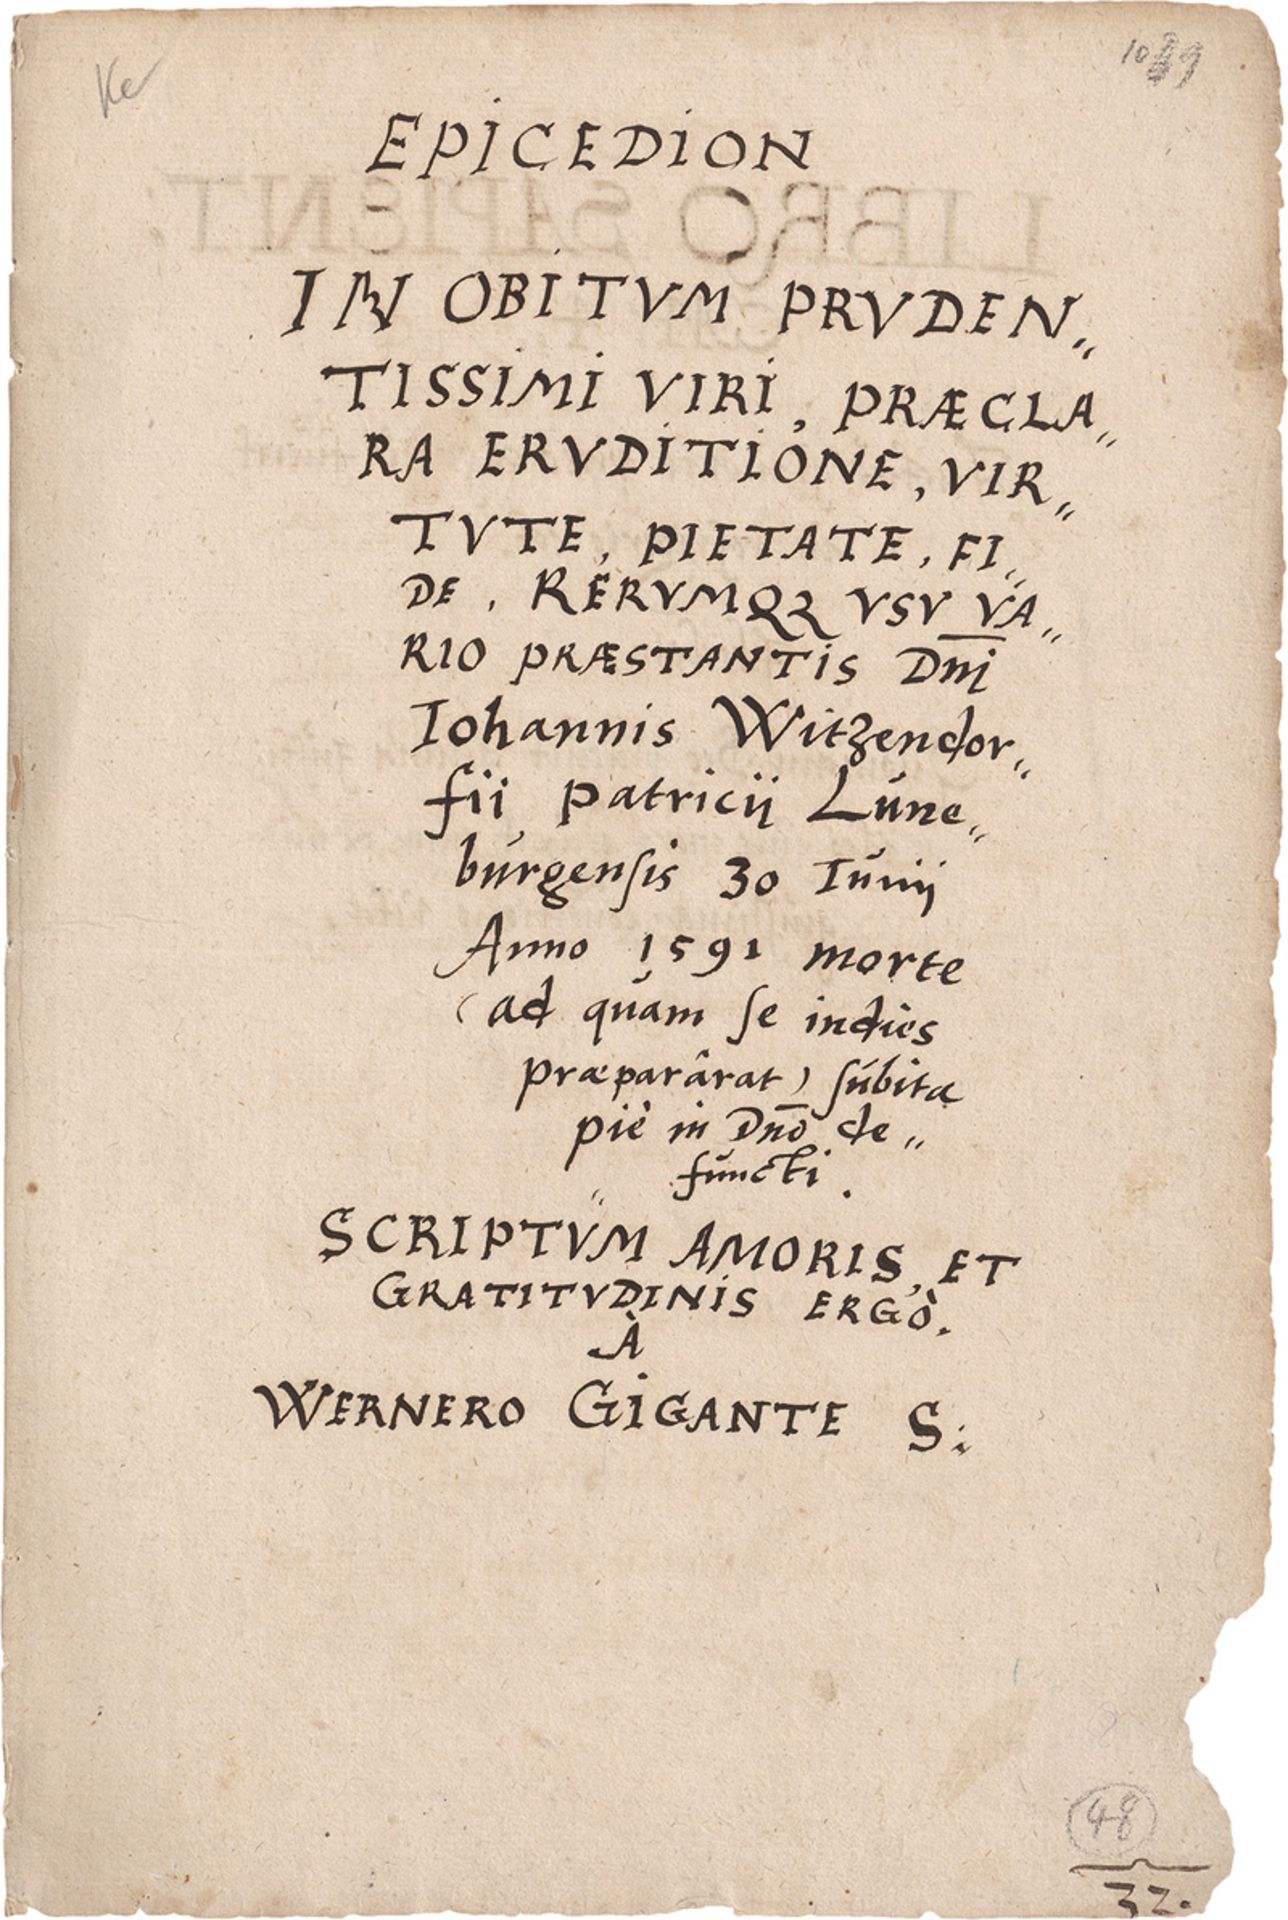 Ke
EPICEDION
IN OBITVM PRVDEN„
TISSIMI VIRI, PRÆCLA„
RA ERVDITIONE, VIR„
TVTE, PIETATE, FI„
DE, RERVMQꝫ VSV VA„
RIO PRÆSTANTIS Dn̄i
Iohannis Witzendor„
fii patricii Lúne„
búrgensis 30 Iúnij
Anno 1591 morte
(ad quàm se indies
præparârat) súbita
piè in Dn̄o de„
functi.
SCRIPTVM AMORIS, ET
GRATITVDINIS ERGÒ.
À
WERNERO GIGANTE S:
48
32.